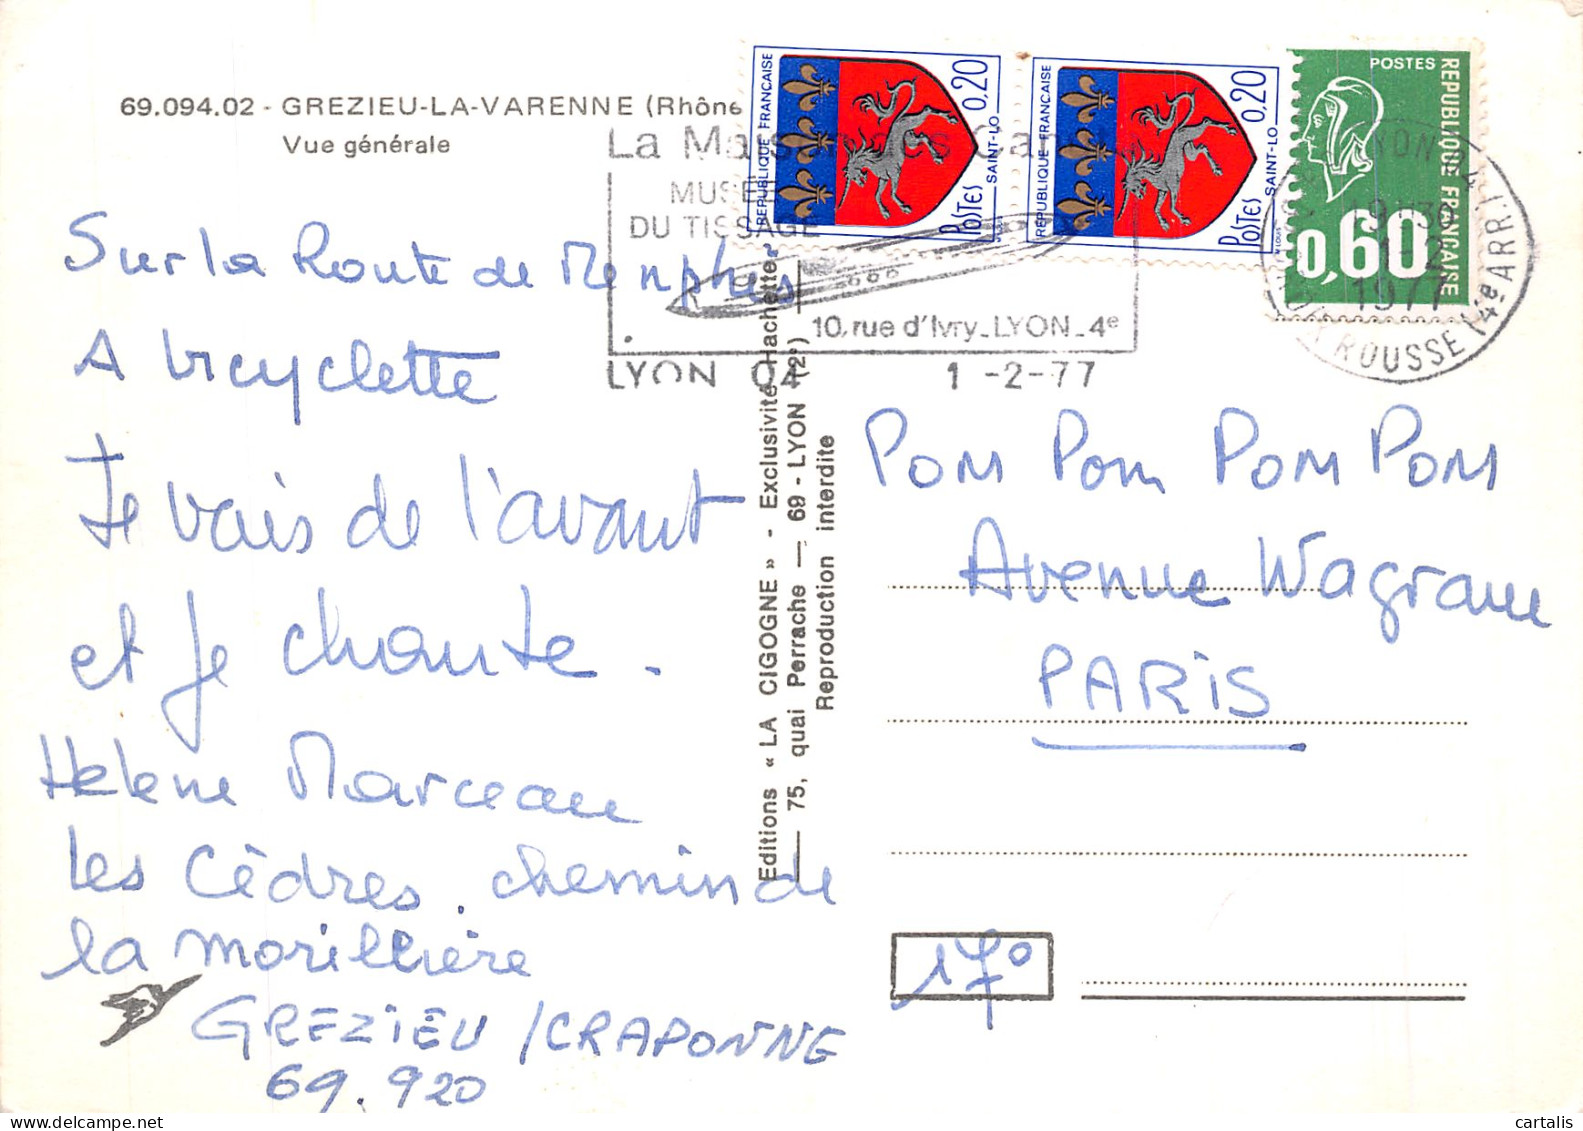 69.094.02 - GREZIEU-LA-VARENNE (Rhône
Vue générale
Sur la Route de Memphis
A bicyclette
Je vais de l'avant
et je chante.
Helene Marceau
Les Cèdres. chemin de
la morillière
GREZIEU / CRAPONNE
69.920
La Maison des Canuts
MUSÉE
DU TISSAGE
10, rue d'Ivry_LYON_4e
LYON 04
1 -2-77
Editions « LA CIGOGNE » - Exclusivité Hachette
— 75, quai Perrache — 69 - LYON (2e) —
Reproduction interdite
REPUBLIQUE FRANÇAISE
POSTES
SAINT-LO
0,20
REPUBLIQUE FRANÇAISE
POSTES
SAINT-LO
0,20
POSTES
REPUBLIQUE FRANÇAISE
0,60
LYON 04
19H30
1-2
1977
CROIX ROUSSE (4e ARRt)
POM POM POM POM
Avenue Wagram
PARIS
17°
cartalis